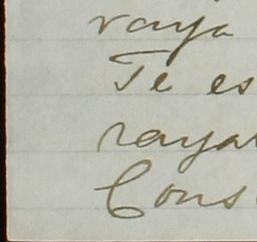 vaya
Te es
rayar
Cons